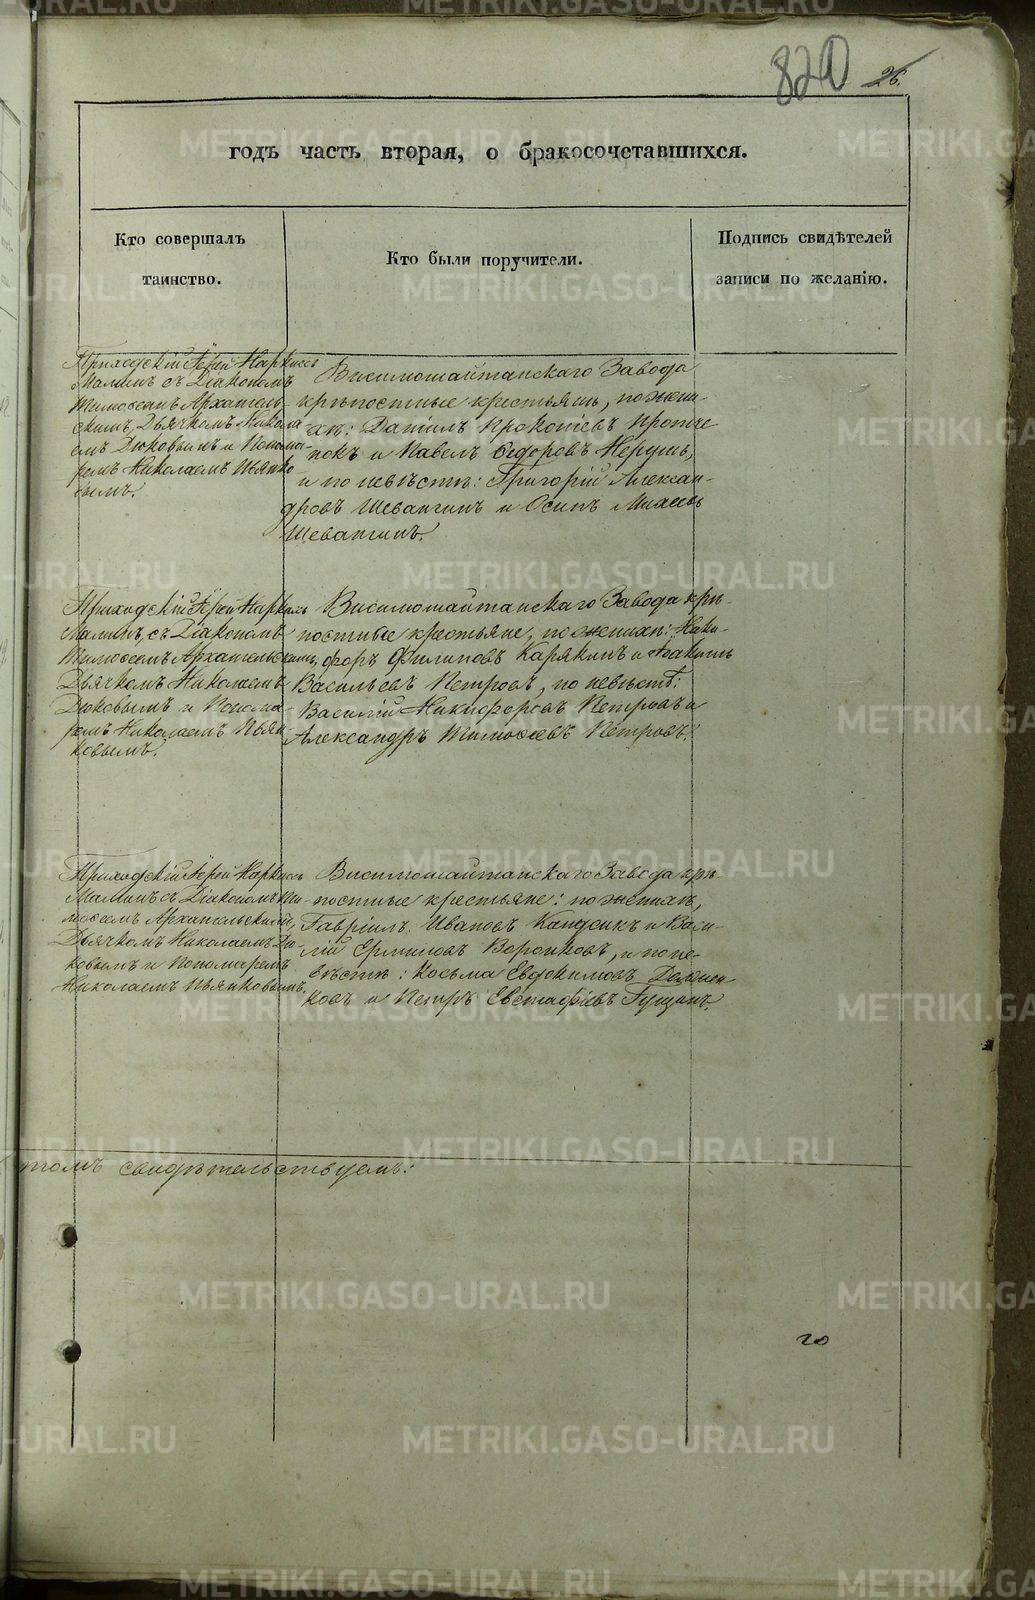 820 26.
годъ часть вторая, о бракосочетавшихся.
Кто совершалъ
таинство.
Кто были поручители.
Подпись свидѣтелей
записи по желанію.
Приходскій Іерей Наркисъ
Маминъ съ Діакономъ
Тимоѳеемъ Архангель-
скимъ, Дьячкомъ Никола
емъ Дюковымъ и Понома-
ремъ Николаемъ Пьянко
вымъ.
Висимошайтанскаго Завода
крѣпостные крестьяне, по жени-
хѣ: Данилъ Прокопіевъ
и Павелъ Ѳедоровъ
и по невѣстѣ: Григорій Алексан-
дровъ Шевангинъ и Осипъ
Шевангинъ.
Приходскій Іерей Наркисъ
Маминъ, съ Діакономъ
Тимоѳеемъ Архангельскимъ,
Дьячкомъ Николаемъ
Дюковымъ и Понома
ремъ Николаемъ Пьян
ковымъ.
Висимошайтанскаго Завода крѣ-
постные крестьяне, по женихѣ: Ники-
форъ Филиповъ Карякинъ и
Васильевъ Петровъ, по невѣстѣ:
Василій Никифоровъ Петровъ и
Александръ Тимоѳеевъ Петровъ.
Приходскій Іерей Наркисъ
Маминъ съ Діакономъ Ти-
моѳеемъ Архангельскимъ,
Дьячкомъ Николаемъ Дю-
ковымъ и Пономаремъ
Николаемъ Пьянковымъ.
Висимошайтанскаго Завода крѣ-
постные крестьяне: по женихѣ,
Гавріилъ Ивановъ Канденкъ и Васи-
лій Ермиловъ Воронковъ, и по не-
вѣстѣ: Косьма Евдокимовъ
и Петръ Евстафіевъ Гущинъ.
томъ свидѣтельствуемъ:
20
METRIKI.GASO-URAL.RU